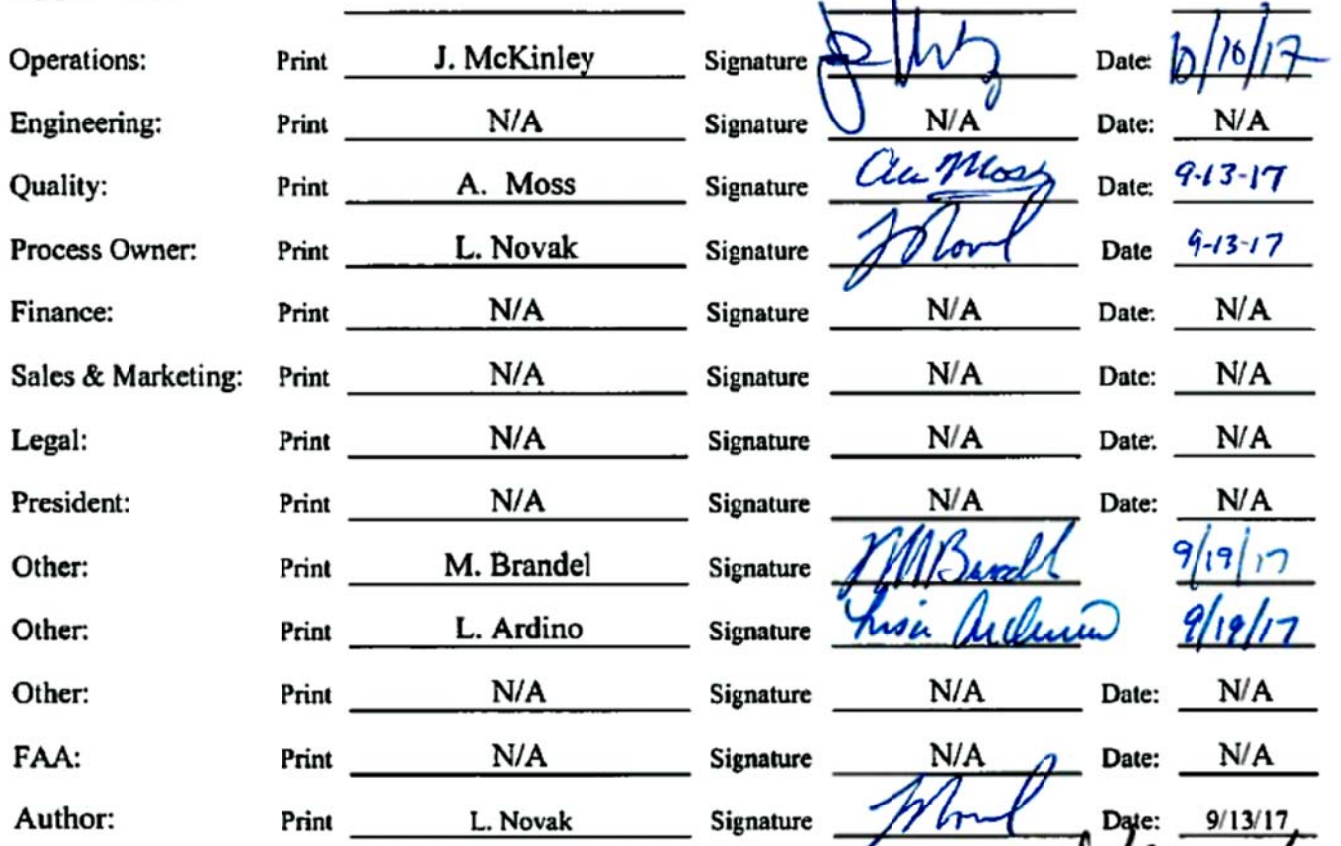 Operations: Print J. McKinley Signature Date: 10/10/17
Engineering: Print N/A Signature N/A Date: N/A
Quality: Print A. Moss Signature Moss Date: 9-13-17
Process Owner: Print L. Novak Signature Date 9-13-17
Finance: Print N/A Signature N/A Date: N/A
Sales & Marketing: Print N/A Signature N/A Date: N/A
Legal: Print N/A Signature N/A Date: N/A
President: Print N/A Signature N/A Date: N/A
Other: Print M. Brandel Signature 9/19/17
Other: Print L. Ardino Signature Lisa 9/19/17
Other: Print N/A Signature N/A Date: N/A
FAA: Print N/A Signature N/A Date: N/A
Author: Print L. Novak Signature Date: 9/13/17